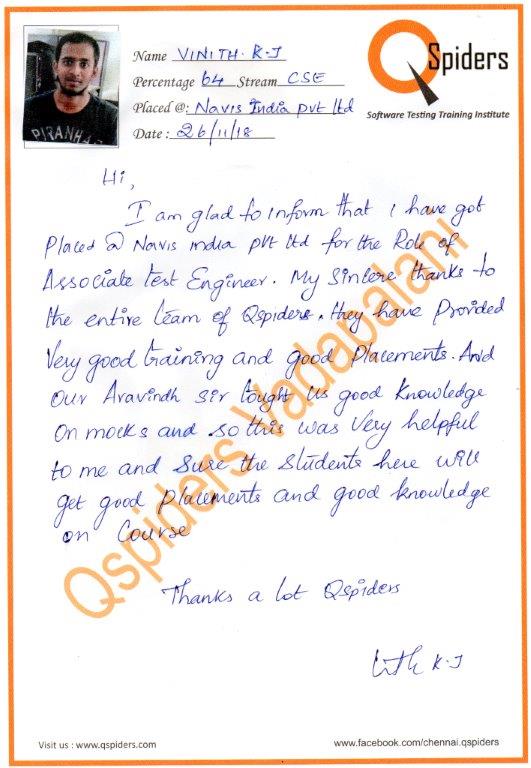 Name VINITH. K-J
Percentage 64 Stream CSE
Placed @: Navis India pvt ltd
Date : 26/11/18
PIRANHA
QSpiders
Software Testing Training Institute
Hi,
I am glad to inform that I have got
Placed @ Navis india pvt ltd for the Role of
Associate test Engineer. My sincere thanks to
the entire team of Qspiders. they have Provided
Very good training and good Placements. And
Our Aravindh sir tought us good Knowledge
On mocks and so this was very helpful
to me and sure the students here will
get good placements and good knowledge
on Course
Thanks a lot Qspiders
K-J
Qspiders Vadapalani
Visit us : www.qspiders.com
www.facebook.com/chennai.qspiders